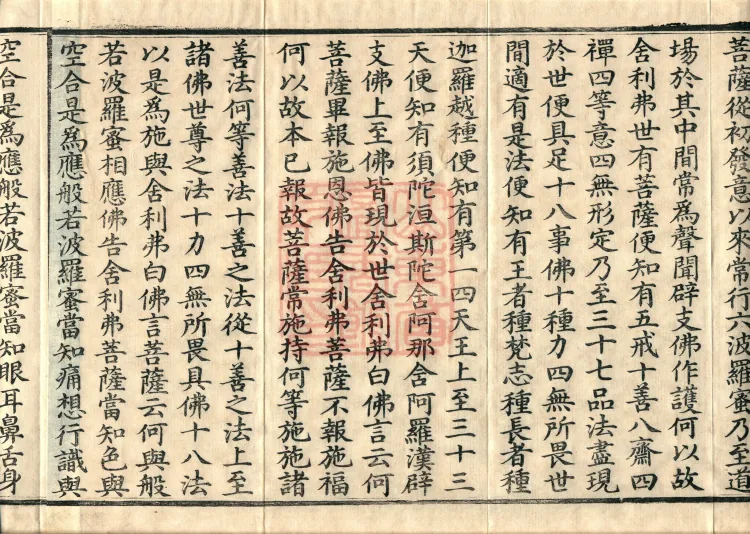 菩薩從初發意以來常行六波羅蜜乃至道
場於其中間常為聲聞辟支佛作護何以故
舍利弗世有菩薩便知有五戒十善八齋四
禪四等意四無形定乃至三十七品法盡現
於世便具足十八事佛十種力四無所畏世
間適有是法便知有王者種梵志種長者種
迦羅越種便知有第一四天王上至三十三
天便知有須陀洹斯陀含阿那含阿羅漢辟
支佛上至佛皆現於世舍利弗白佛言云何
菩薩畢報施恩佛告舍利弗菩薩不報施福
何以故本已報故菩薩常施持何等施施諸
善法何等善法十善之法從十善之法上至
諸佛世尊之法十力四無所畏具佛十八法
以是為施與舍利弗白佛言菩薩云何與般
若波羅蜜相應佛告舍利弗菩薩當知色與
空合是為應般若波羅蜜當知痛想行識與
空合是為應般若波羅蜜當知眼耳鼻舌身